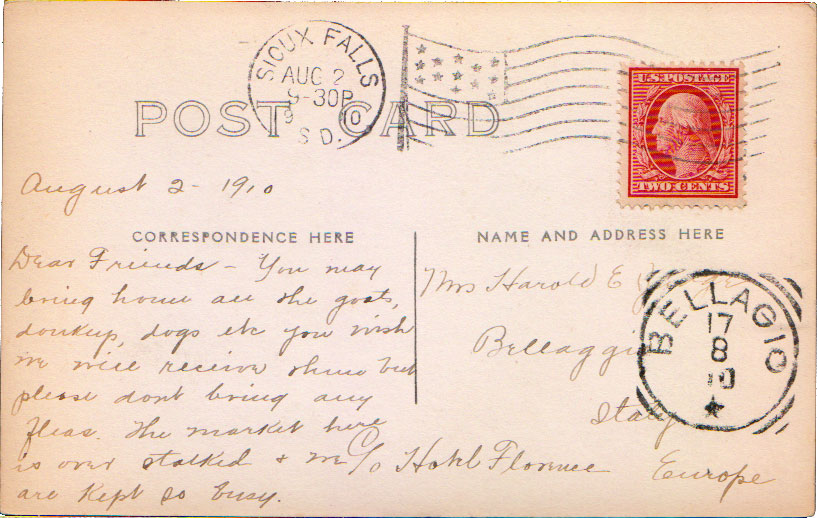 SIOUX FALLS
AUG 2
9-30P
S.D.
U.S. POSTAGE
TWO CENTS
POST CARD
August 2 - 1910
CORRESPONDENCE HERE
NAME AND ADDRESS HERE
Dear Friends - You may
bring home all the goats,
donkeys, dogs etc you wish
we will receive them but
please dont bring any
fleas. The market here
is over stalked & we
are kept so busy.
Mrs Harold E
Bellaggio
Italy
C/o Hotel Florence
Europe
BELLAGIO
17
8
10